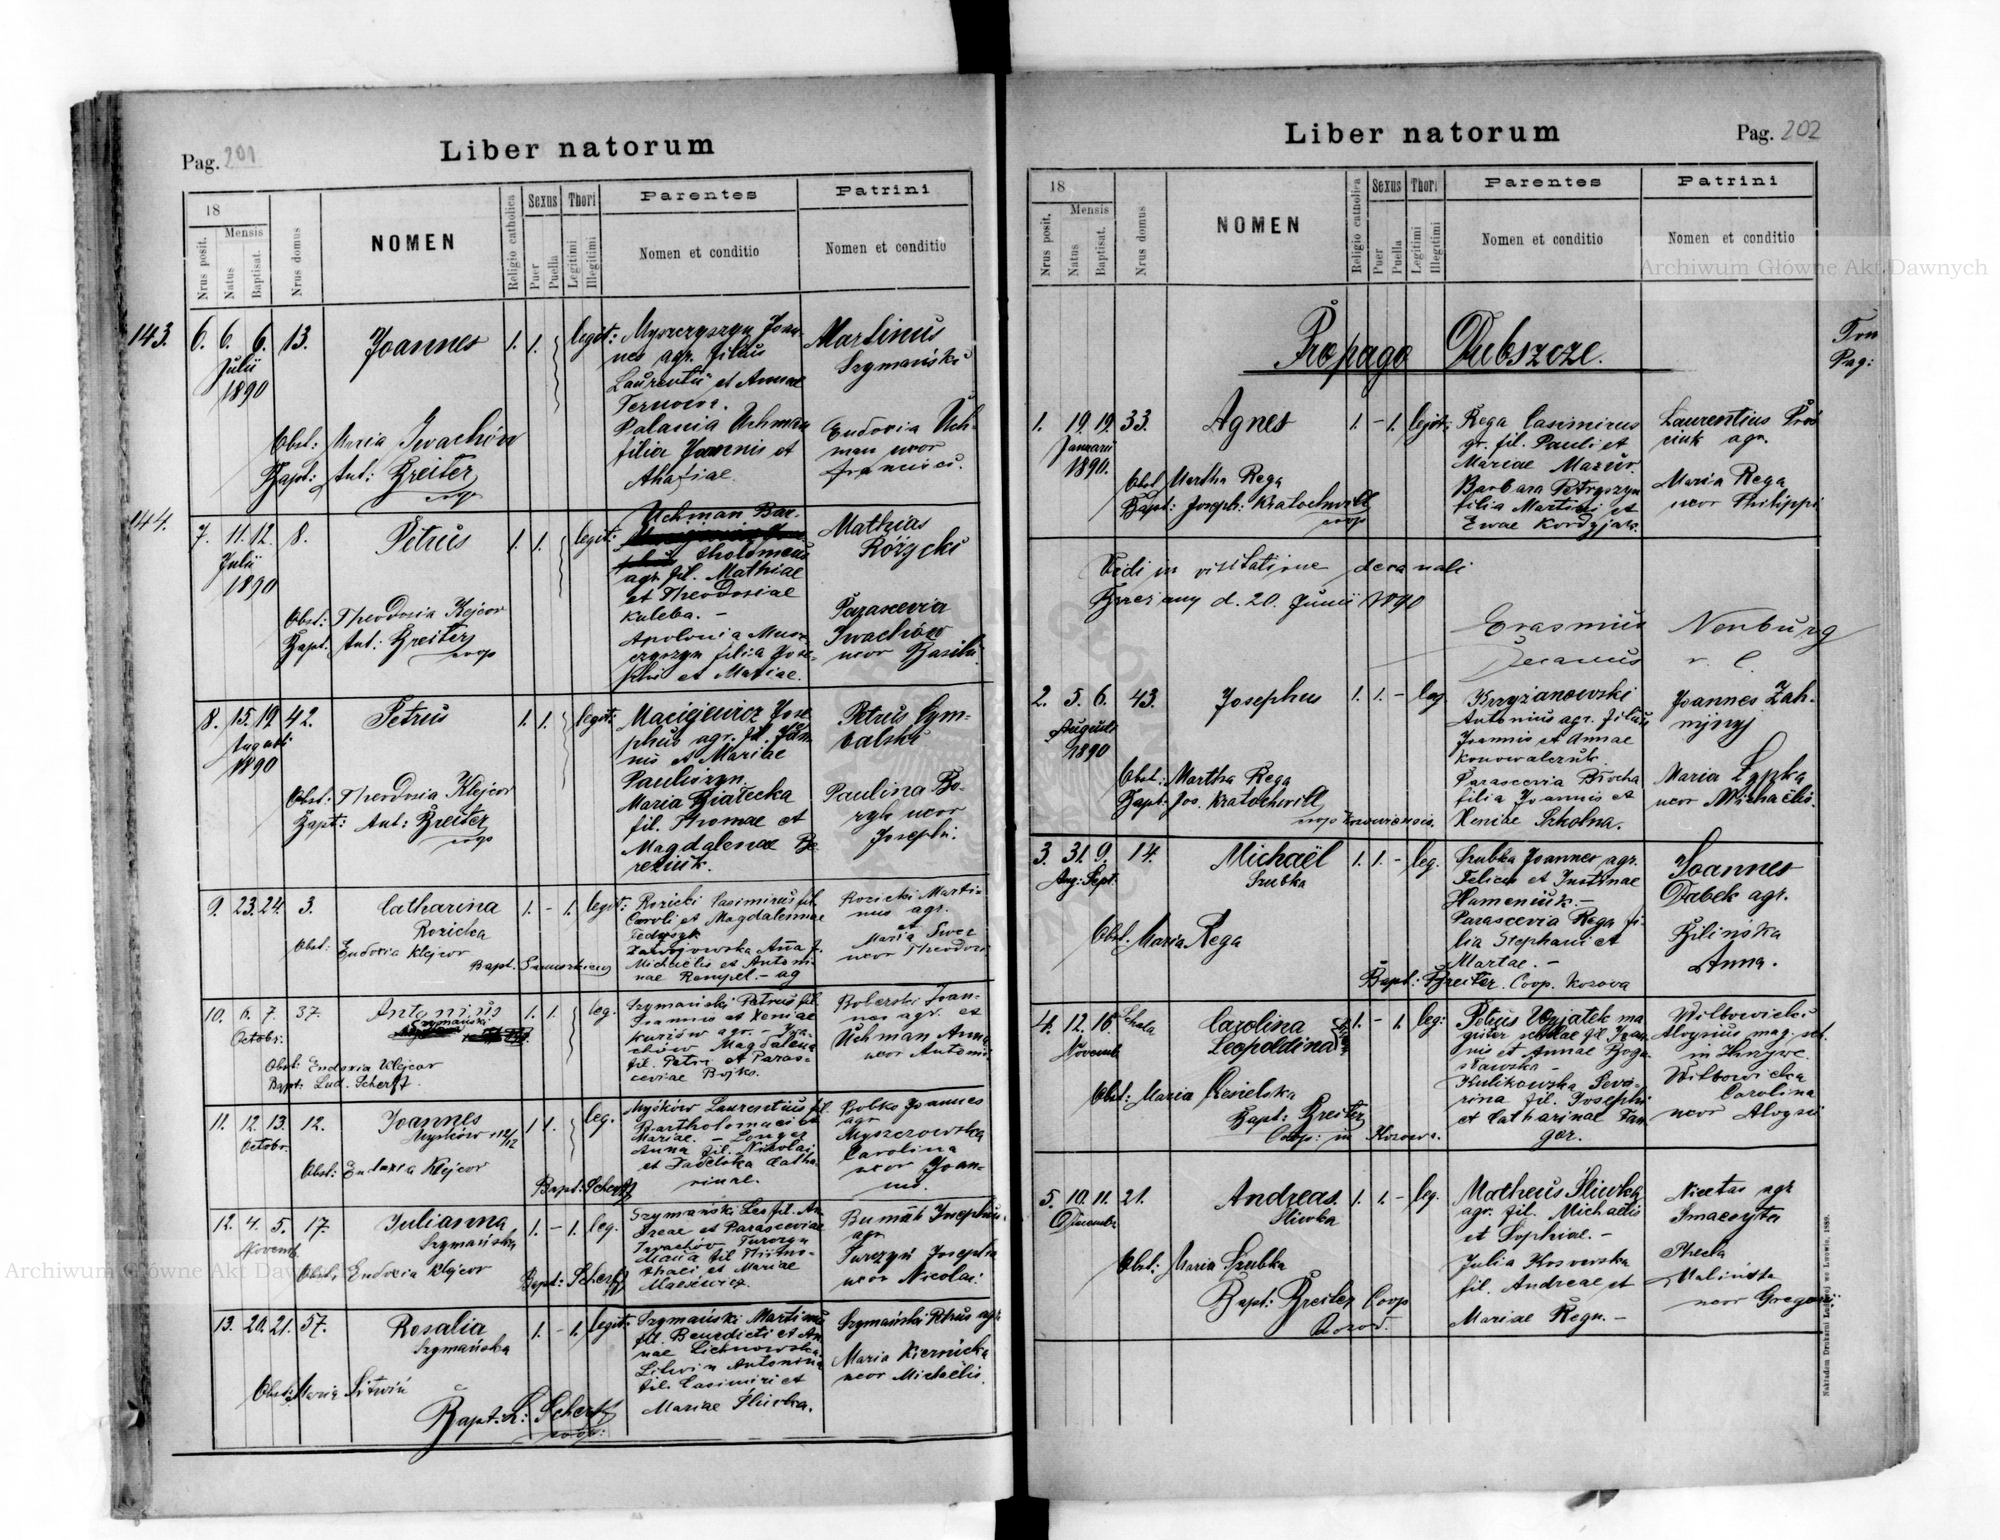 Pag. 201
Liber natorum
18
Mensis
Nrus posit.
Natus
Baptisat.
Nrus domus
NOMEN
Religio catholica
Sexus
Puer
Puella
Thori
Legitimi
Illegitimi
Parentes
Nomen et conditio
Patrini
Nomen et conditio
143. 6. 6. 6. 13. Joannes 1. 1. legit:
Julii
1890
Obst: Maria Iwachów
Bapt: Ant: Breiter
coop
Myszczyszyn Joan-
nes agr. filius
Laurentii et Annae
Palania Uchman
filia Joannis et
Martinus
Szymański
Eudoxia Uch-
man uxor
Francisci.
144. 7. 11. 12. 8. Petrus 1. 1. legit:
Julii
1890
Obst: Theodosia Klejcor
Bapt: Ant: Breiter
coop
Uchman Bar-
tholomeus
agr. fil. Mathiae
et Theodosiae
Kuleba. -
Apolonia Mysz-
czyszyn filia Jose-
phi et Mariae.
Mathias
Różycki
Parascevia
Iwachów
uxor Basilii.
8. 15. 19. 42. Petrus 1. 1. legit:
Augusti
1890
Obst: Theodosia Klejcor
Bapt: Ant: Breiter
coop
Maciejewicz Jose-
phus agr. fil. Joan-
nis et Mariae
Pauliszyn.
Maria Białecka
fil. Thomae et
Magdalenae Be-
reziuk.
Petrus Cym-
balski
Paulina Bo-
uxor
Josephi.
9. 23. 24. 3. Catharina 1. - 1. legit:
Rozicka
Obst: Eudoxia Klejcor
Bapt.
Rozicki Casimirus fil.
Caroli et Magdalenae
Fedyszyk
Michaelis et Antoni-
nae Rempel. - ag
Rozicki Marti-
nus agr.
et
Maria
uxor Theodori
10. 6. 7. 37. Antonius 1. 1. leg.
Octobr.
Szymański
Obst: Eudoxia Klejcor
Bapt: Lud. Scherff.
Szymański Petrus fil.
Joannis et Xeniae
agr. - Iwa-
chów Magdalena
fil. Petri et Paras-
ceviae Bojko.
Boberski Joan-
nes agr. et
Uchman Anna
uxor Antonii
11. 12. 13. 12. Joannes 1. 1. leg.
Octobr.
Myśków + 12/12
Obst: Eudoxia Klejcor
Bapt: Scherff
Myśków Laurentius fil.
Bartholomaei et
Mariae. -
Anna fil. Nicolai
et Catha-
rinae.
Bolko Joannes
agr
Myszczowska
Carolina
uxor Joan-
nis.
12. 4. 5. 17. Julianna 1. - 1. leg.
Novemb.
Szymańska
Obst: Eudoxia Klejcor
Bapt: Scherff
Szymański Leo fil. An-
dreae et Parasceviae
Iwachów
Maria fil.
et Mariae
Josephus
agr
Josepha
uxor Nicolai
13. 20. 21. 57. Rosalia 1. - 1. legit:
Szymańska
Obst: Maria Litwin
Bapt: L: Scherff
coop:
Szymański Martinus
fil. Benedicti et An-
nae Lichnowska
Litwin Antonina
fil. Casimiri et
Mariae Śliwka.
Szymański Petrus agr
Maria Kiernicka
uxor Michaelis.
Liber natorum
Pag. 202
18
Mensis
Nrus posit.
Natus
Baptisat.
Nrus domus
NOMEN
Religio catholica
Sexus
Puer
Puella
Thori
Legitimi
Illegitimi
Parentes
Nomen et conditio
Patrini
Nomen et conditio
Propago Dubszcze.
Tom
Pag:
1. 19. 19. 33. Agnes 1. - 1. legit:
Januarii
1890.
Obst. Martha Rega
Bapt: Joseph: Kratochwill
coop
Rega Casimirus
gr. fil. Pauli et
Mariae Mazur.
Barbara Petryszyn
filia Martini et
Evae Kordyjara.
Laurentius
agr.
Maria Rega
uxor Philippi
Vidi in visitatione decanali
Brzeżany d. 20. Junii 1890
Erasmus Neuburg
Decanus r. l.
2. 5. 6. 43. Josephus 1. 1. - leg.
Augusti
1890
Obst: Martha Rega
Bapt: Jos. Kratochwill
coop Kozoviensis.
Krzyżanowski
Antonius agr. filius
Joannis et Annae
Konowalczuk.
Parascevia Błocha
filia Joannis et
Xeniae Szkolna.
Joannes Zah-
nijnyj
Maria Łypka
uxor Michaëlis.
3. 31. 9. 14. Michaël 1. 1. - leg.
Aug: Sept.
Szubka
Obst. Maria Rega
Bapt: Breiter. Coop. Kozova
Szubka Joannes agr.
Felicis et Justinae
Hameniuk. -
Parascevia Rega fi-
lia Stephani et
Martae. -
Joannes
Dąbek agr.
Bilinska
Anna.
4. 12. 16. Schola Carolina 1. - 1. leg.
Novemb.
Leopoldina
Obst: Maria
Bapt: Breiter
Coop: in Kozowa.
Petrus ma
gister scholae fil Joan-
nis et Annae Bogu-
sławska -
Kulikowska Seve-
rina fil. Josephi
et Catharinae Fan-
ger.
Witkowicki
Aloysius mag. sch.
in
Witkowicka
Carolina
uxor Aloysii
5. 10. 11. 21. Andreas. 1. 1. - leg.
Decembr.
Śliwka
Obst: Maria Szubka
Bapt: Breiter Coop
Kozov.
Matheus Śliwka
agr. fil. Michaelis
et Sophiae. -
Julia Kosowska
fil. Andreae et
Mariae Regn. -
Nicetas agr
Thecla
uxor Gregorii
Nakładem Drukarni Ludowej we Lwowie, 1889.
Archiwum Główne Akt Dawnych
Archiwum Główne Akt Dawnych